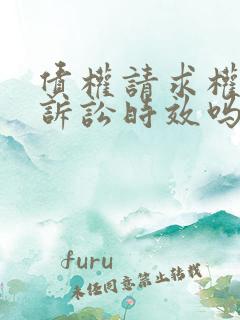 债權請求權
訴訟時效吗
furu
未经同意禁止转载